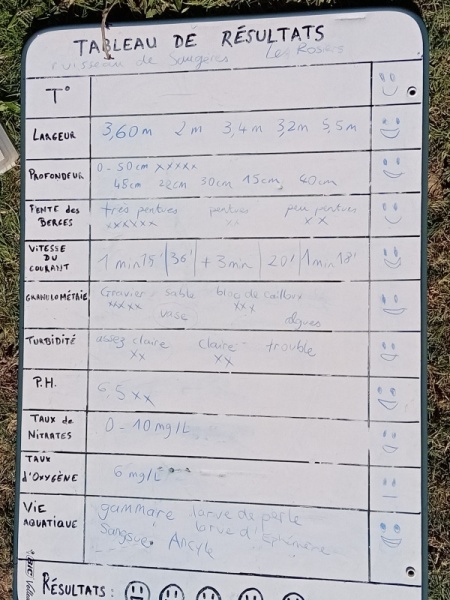 TABLEAU DE RÉSULTATS
ruisseau de Saugeras Les Rosiers
T°
LARGEUR 3,60m 2m 3,4m 3,2m 5,5m
PROFONDEUR 0-50cm xxxxx
45cm 22cm 30cm 15cm 40cm
PENTE des BERGES très pentues pentues peu pentues
xxxxxx xx xx
VITESSE DU COURANT 1 min 15' | 36' | + 3min | 20' | 1min 18'
GRANULOMÉTRIE Gravier sable bloc de cailloux
xxxxx vase xxx algues
TURBIDITÉ assez claire claire trouble
xx xx
P.H. 6,5 xx
TAUX de NITRATES 0-10mg/L
TAUX d'OXYGÈNE 6mg/L
VIE AQUATIQUE gammare larve de perle
Sangsue Ancyle larve d'Ephémère
RÉSULTATS :